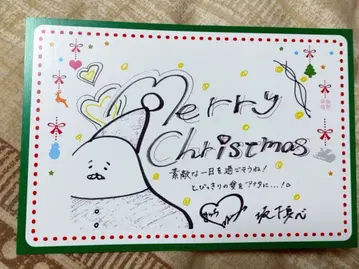 Merry
Christmas
素敵な一日を過ごそうね!
とびっきりの愛をアナタに…!